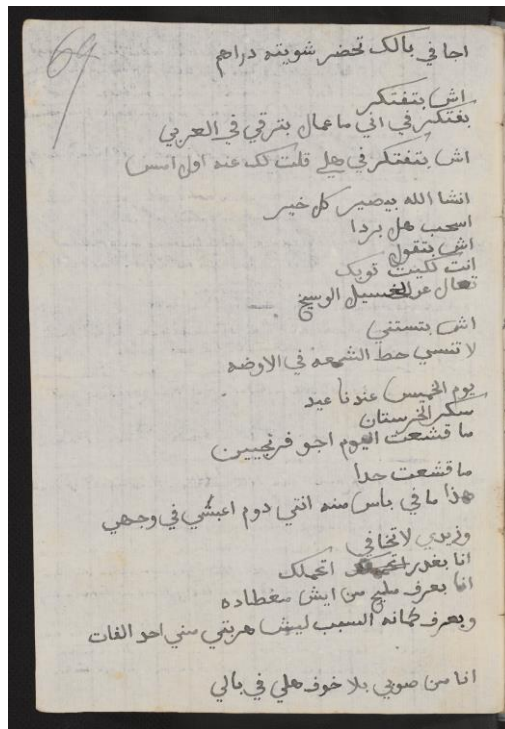 69
اجا في بالك تحضر شويته دراهم
اش بتفتكر
بفتكر في اني ما عمال بترقي في العربي
اش بتفتكر في هلي قلت لك عنه اول امس
انشا الله بيصير كل خير
اسحب هل بردا
اش بتقول
انت كيت توبك
تعال عد الغسيل الوسيخ
اش بتستني
لا تنسي حط الشمعه في الاوضه
يوم الخميس عندنا عيد
سكر الخرستان
ما قشعت اليوم اجو فرنجيين
ما قشعت حدا
هذا ما في باس منه انتي دوم اعبشي في وجهي
وزيدي لا تخافي
انا بغدر اتحملك
انا بعرف مليح من ايش مغطاده
وبعرف كمانه السبب ليش هربتي مني احد الفات
انا من صوبي بلا خوف هلي في بالي